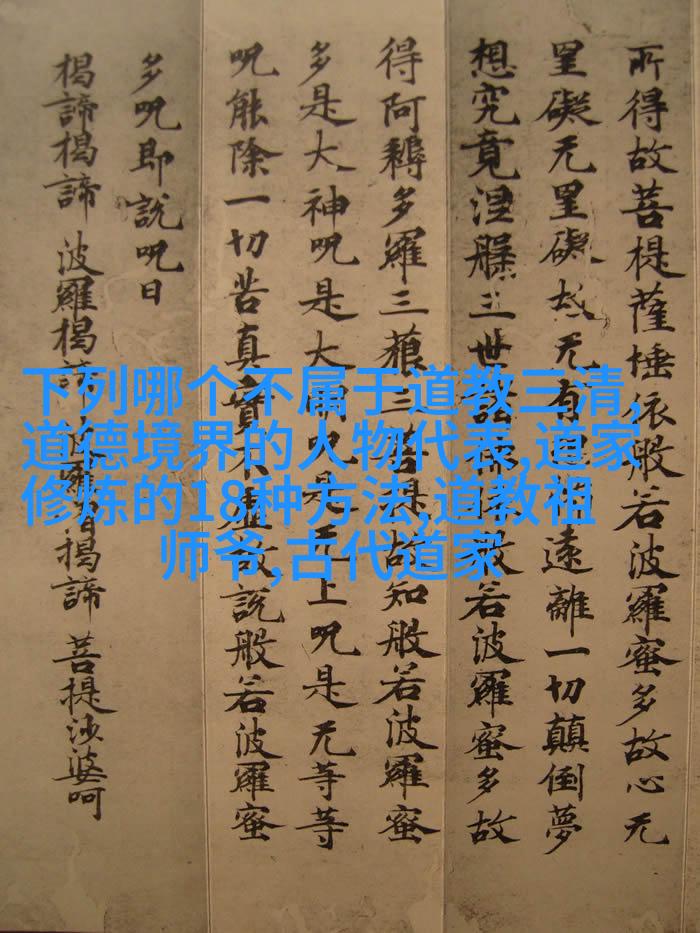 下列哪个不属于道教三清,
道德境界的人物代表,道家
修炼的18种方法,道教祖
师爷,古代道家
所得故菩提薩埵依般若波羅蜜多故心无
罣礙无罣礙故无有遠離一切顛倒夢
想究竟涅槃三世諸若波羅蜜多故
得阿耨多羅三藐三菩提故知般若波羅蜜
多是大神呪是大明呪是无上呪是无等等
呪能除一切苦真實不虛故說般若波羅蜜
多呪即說呪曰
揭諦揭諦 波羅揭諦 揭諦 菩提沙婆呵